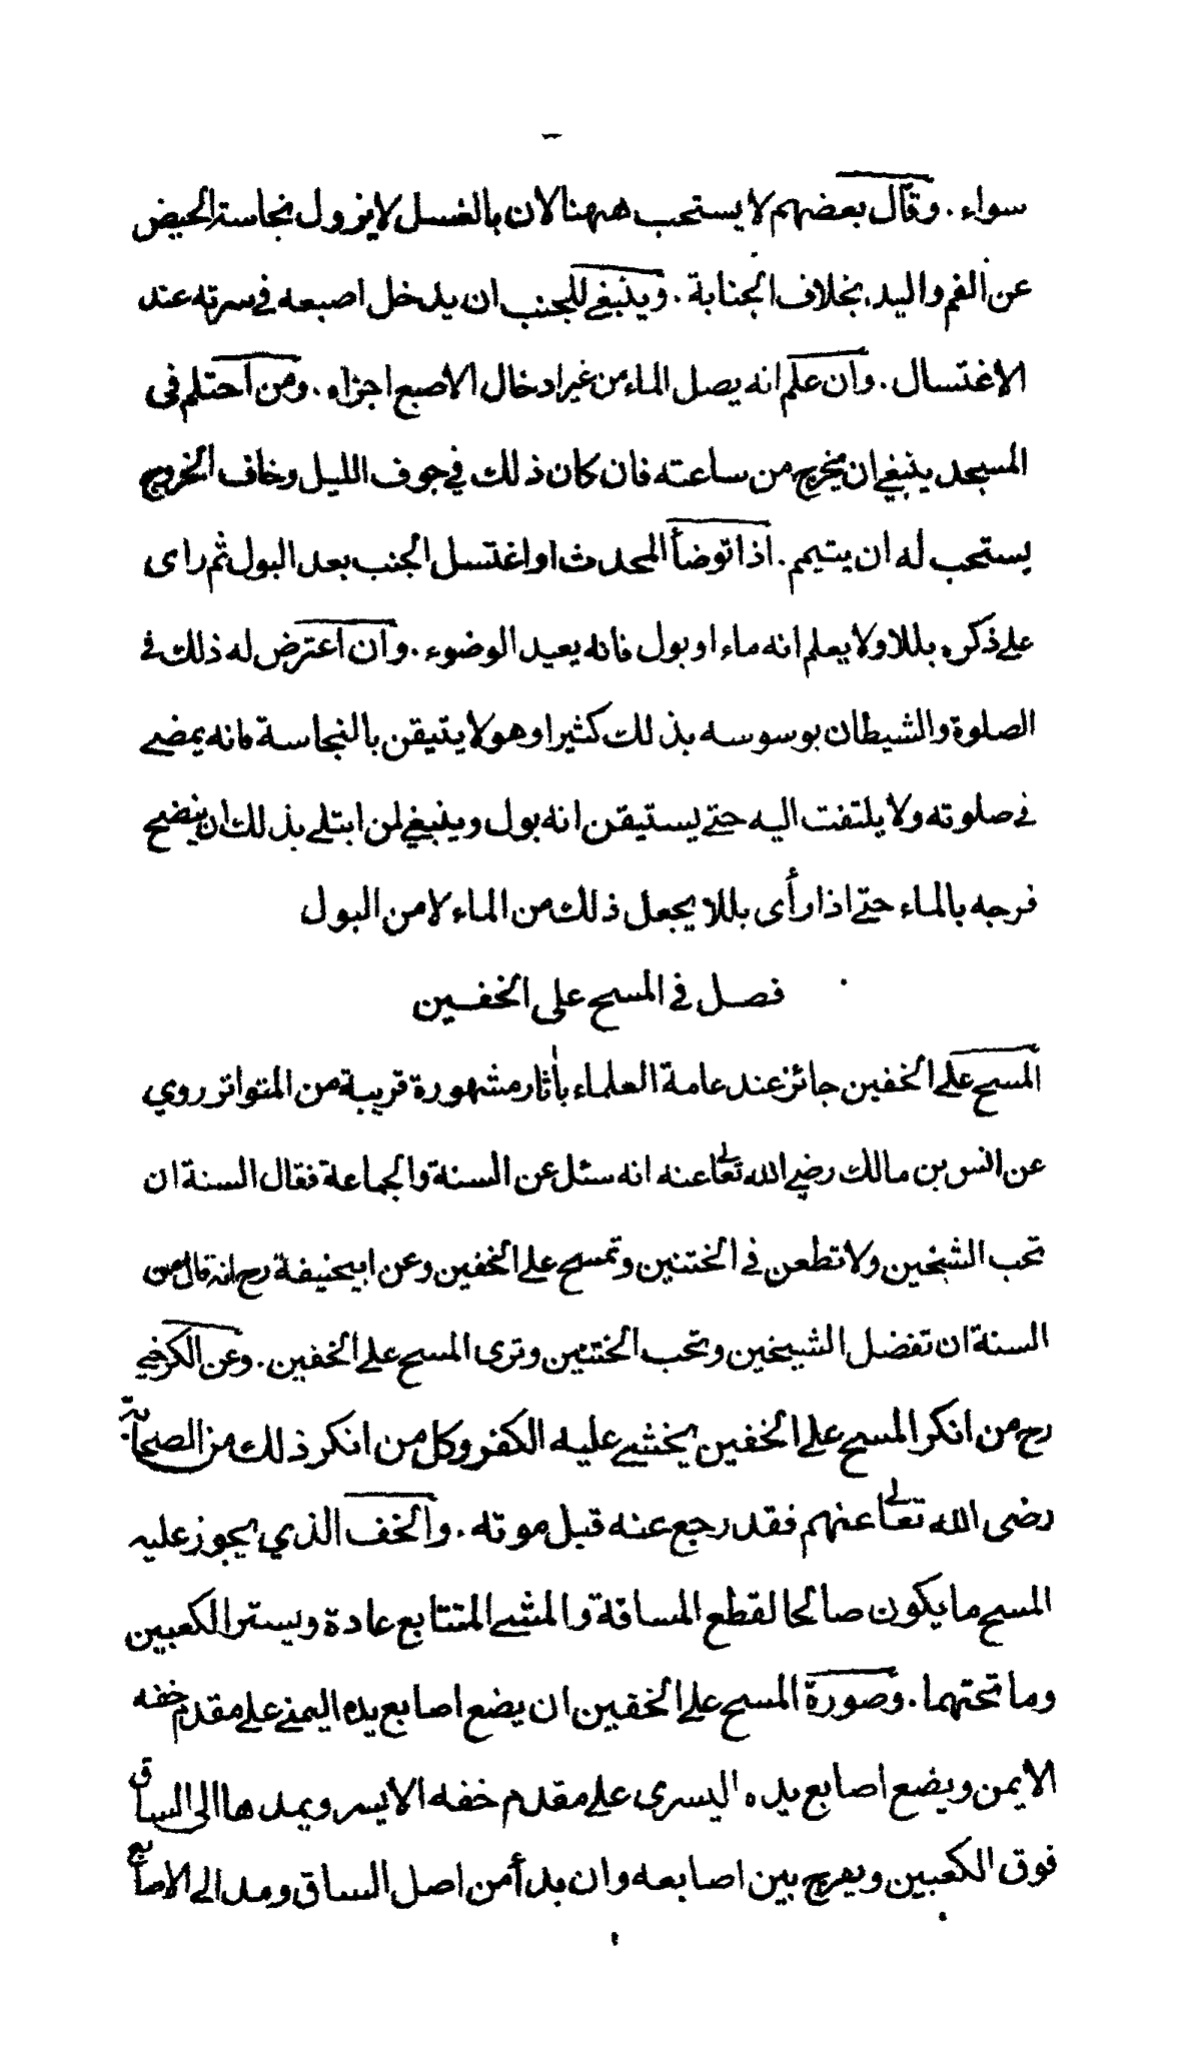 سواء . وقال بعضهم لا يستحب ههنا لان بالغسل لا يزول نجاسة الحيض
عن الفم واليد بخلاف الجنابة . وينبغي للجنب ان يدخل اصبعه في سرته عند
الاغتسال . وان علم انه يصل الماء من غير ادخال الاصبع اجزاه . ومن احتلم فى
المسجد ينبغي ان يخرج من ساعته فان كان ذلك في جوف الليل وخاف الخروج
يستحب له ان يتيمم . اذا توضأ المحدث او اغتسل الجنب بعد البول ثم راى
على ذكره بللا ولا يعلم انه ماء او بول فانه يعيد الوضوء . وان اعترض له ذلك في
الصلوة والشيطان يوسوسه بذلك كثيرا وهو لا يتيقن بالنجاسة فانه يمضي
في صلوته ولا يلتفت اليه حتى يستيقن انه بول وينبغي لمن ابتلي بذلك ان ينضح
فرجه بالماء حتى اذا رأى بللا يجعل ذلك من الماء لا من البول
فصل في المسح على الخفين
المسح على الخفين جائز عند عامة العلماء بأثار مشهورة قريبة من المتواتر روي
عن انس بن مالك رضي الله تعالى عنه انه سئل عن السنة والجماعة فقال السنة ان
تحب الشيخين ولا تطعن في الختنين وتمسح على الخفين وعن ابيحنيفة رح انه قال من
السنة ان تفضل الشيخين وتحب الختنين وترى المسح على الخفين . وعن الكرخي
رح من انكر المسح على الخفين يخشى عليه الكفر وكل من انكر ذلك من الصحابة
رضى الله تعالى عنهم فقد رجع عنه قبل موته . والخف الذي يجوز عليه
المسح ما يكون صالحا لقطع المسافة والمشي المتتابع عادة ويستر الكعبين
وما تحتهما . وصورة المسح على الخفين ان يضع اصابع يده اليمنى على مقدم خفه
الايمن ويضع اصابع يده اليسرى على مقدم خفه الايسر ويمدها الى الساق
فوق الكعبين ويفرج بين اصابعه وان بدأ من اصل الساق ومد الى الاصابع